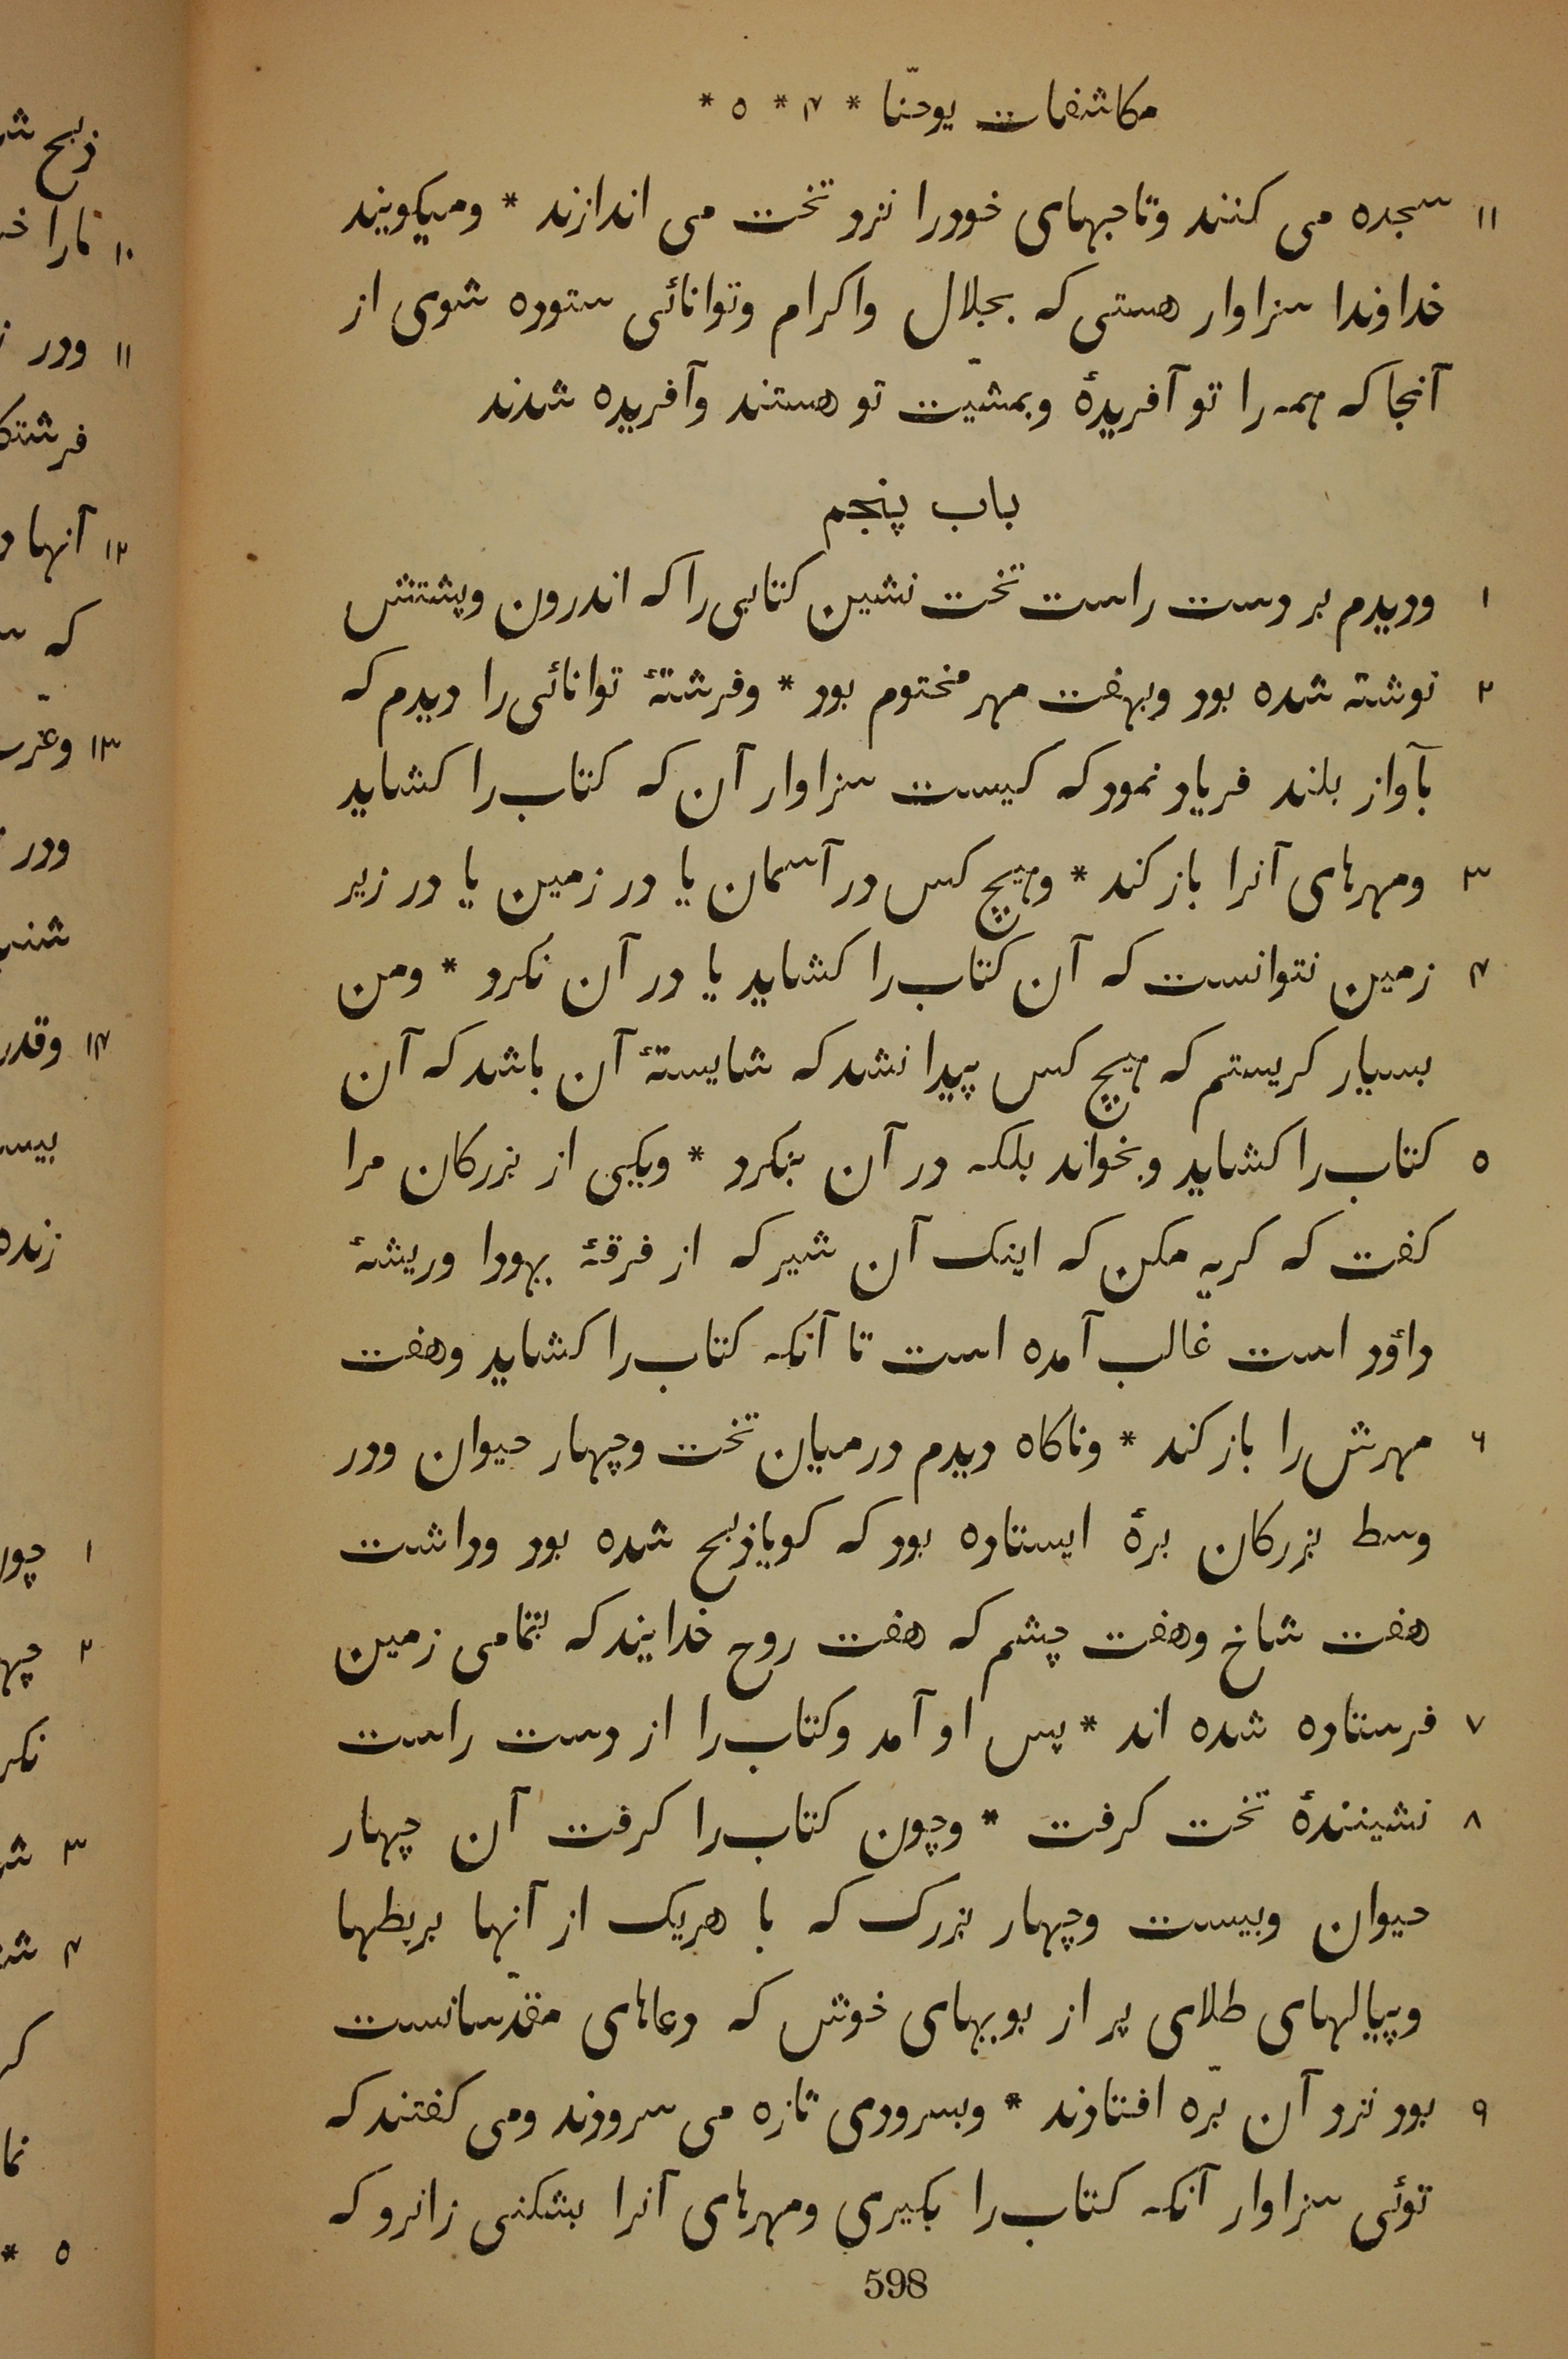 مکاشفات یوحنّا * ۴ * ٥ *
۱۱ سجده می کنند وتاجهای خودرا نزد تخت می اندازند * ومیکویند
خداوندا سزاوار هستی که بجلال واکرام وتوانائی ستوده شوی از
آنجا که همه را تو آفریدهٔ وبمشیّت تو هستند وآفریده شدند
باب پنجم
۱ ودیدم بر دست راست تخت نشین کتابی را که اندرون وپشتش
۲ نوشته شده بود وبهفت مهر مختوم بود * وفرشتهٔ توانائی را دیدم که
بآواز بلند فریاد نمود که کیست سزاوار آن که کتاب را کشاید
۳ ومهرهای آنرا باز کند * وهیچ کس در آسمان یا در زمین یا در زیر
۴ زمین نتوانست که آن کتاب را کشاید یا در آن نکرد * ومن
بسیار کریستم که هیچ کس پیدا نشد که شایستهٔ آن باشد که آن
٥ کتاب را کشاید وبخواند بلکه در آن بنکرد * ویکی از بزرکان مرا
کفت که کریه مکن که اینک آن شیر که از فرقهٔ یهودا وریشهٔ
داؤد است غالب آمده است تا آنکه کتاب را کشاید وهفت
۶ مهرش را باز کند * وناکاه دیدم درمیان تخت وچهار حیوان ودر
وسط بزرکان برهٔ ایستاده بود که کویا ذبح شده بود وداشت
هفت شاخ وهفت چشم که هفت روح خدایند که بتمامی زمین
۷ فرستاده شده اند * پس او آمد وکتاب را از دست راست
۸ نشینندهٔ تخت کرفت * وچون کتاب را کرفت آن چهار
حیوان وبیست وچهار بزرک که با هریک از آنها بربطها
وپیالهای طلای پر از بویهای خوش که دعاهای مقدّسانست
۹ بود نزد آن برّه افتادند * وبسرودی تازه می سرودند ومی کفتند که
توئی سزاوار آنکه کتاب را بکیری ومهرهای آنرا بشکنی زانرو که
598